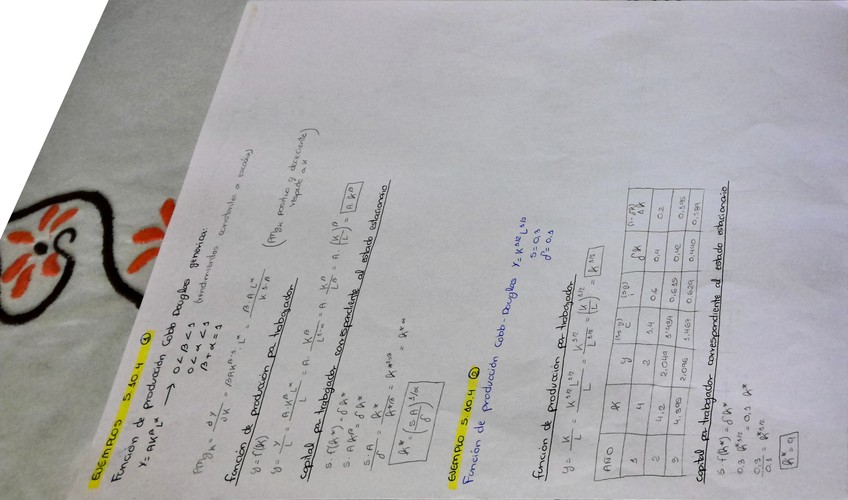 EJEMPLOS 5.10.4 ①
Función de producción Cobb Douglas genérica:
Y = AK^β L^α → 0 < β < 1
0 < α < 1
β + α = 1 (rendimientos constantes a escala)
PMg_K = dY/dK = βAK^(β-1) · L^α = β·A·L^α / K^(1-β) (PMg_K positivo y decreciente respecto a K)
función de producción por trabajador
y = f(k)
y = Y/L = A·K^β L^α / L = A · K^β / L^(1-α) = A · K^β / L^β = A · (K/L)^β = A·k^β
capital por trabajador correspondiente al estado estacionario
s · f(k*) = δk*
s · A k^β = δk*
s · A / δ = k* / k*^β = k*^(1-β) = k*^α
k* = (s·A / δ)^(1/α)
EJEMPLO 5.10.4 ②
Función de producción Cobb-Douglas Y = K^1/2 L^1/2
s = 0,3
δ = 0,1
función de producción por trabajador
y = K/L = K^1/2 L^1/2 / L = K^1/2 / L^1/2 = (K/L)^1/2 = k^1/2
AÑO K y (1-s·y) C (s·y) i δK (i-δK) ΔK
1 4 2 1.4 0.6 0.4 0.2
2 4.2 2.049 1.434 0.615 0.42 0.195
3 4.395 2.096 1.467 0.629 0.440 0.189
capital por trabajador correspondiente al estado estacionario
s · f(k*) = δk*
0.3 · k*^1/2 = 0,1 k*
0.3 / 0.1 = k*^1/2
k* = 9